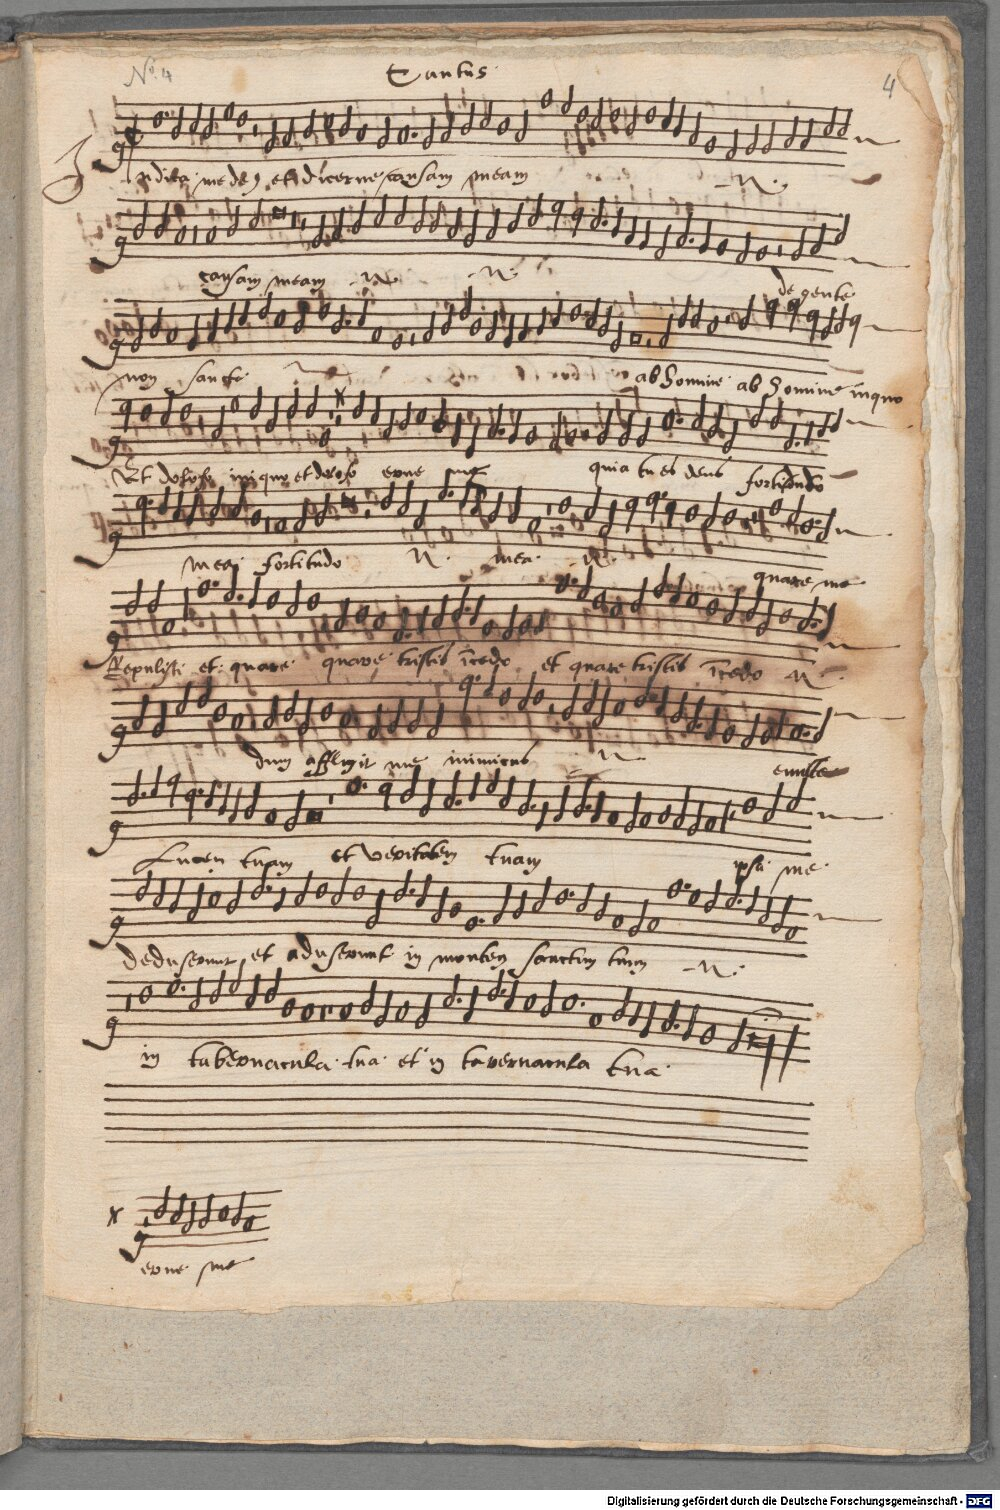 No. 4
Cantus
4
Iudica me deus et discerne causam meam
causam meam
de gente
non sancta
ab homine ab homine iniquo
Et doloso iniquo et doloso erue me
quia tu es deus fortitudo
mea fortitudo mea
quare me
Repulisti et quare quare tristis incedo et quare tristis incedo
dum affligit me inimicus
emitte
Lucem tuam et veritatem tuam
ipsa me
deduxerunt et aduxerunt in montem sanctum tuum
in tabernacula tua et in tabernacula tua
x
erue me
Digitalisierung gefördert durch die Deutsche Forschungsgemeinschaft - DFG